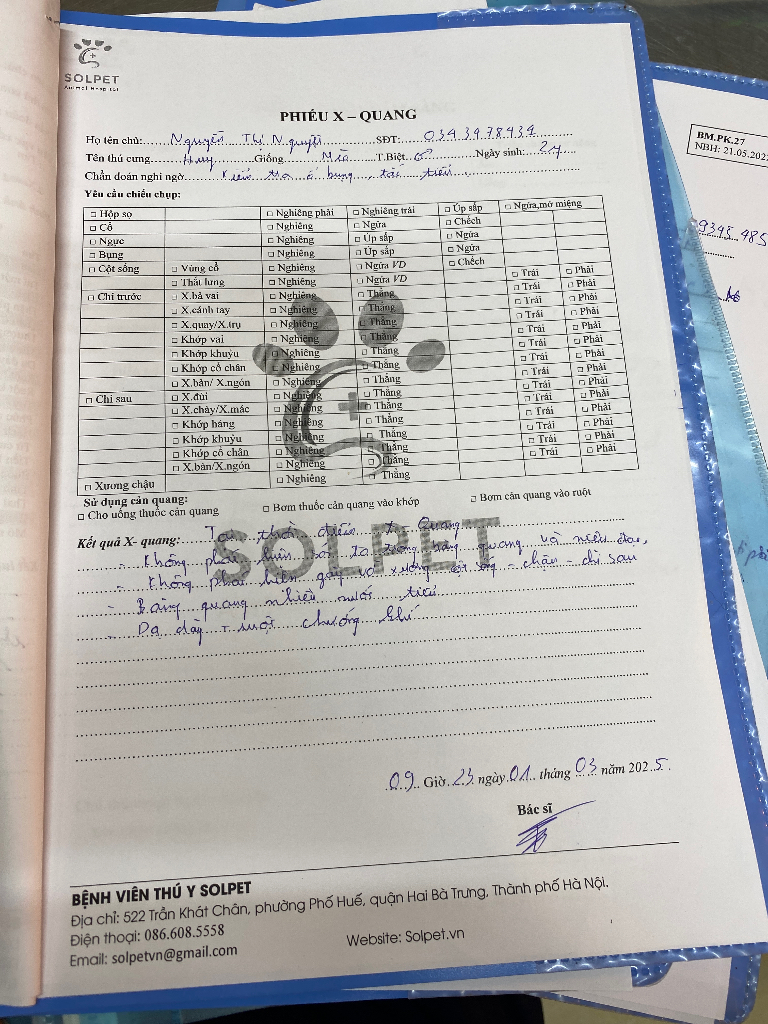 SOLPET
Animal Hospital
PHIẾU X – QUANG
Họ tên chủ: Nguyễn Thị Nguyệt SĐT: 0343978439
Tên thú cưng: Huy Giống: Mèo T.Biệt: ♂ Ngày sinh: 2y
Chẩn đoán nghi ngờ: Kiểm tra ổ bụng, tắc tiểu
Yêu cầu chiếu chụp:
□ Hộp sọ □ Nghiêng phải □ Nghiêng trái □ Úp sấp □ Ngửa, mở miệng
□ Cổ □ Nghiêng □ Ngửa □ Chếch
□ Ngực □ Nghiêng □ Úp sấp □ Ngửa
□ Bụng □ Nghiêng □ Úp sấp □ Ngửa
□ Cột sống □ Vùng cổ □ Nghiêng □ Ngửa VD □ Chếch
□ Thắt lưng □ Nghiêng □ Ngửa VD □ Trái □ Phải
□ Chi trước □ X.bả vai □ Nghiêng □ Thẳng □ Trái □ Phải
□ X.cánh tay □ Nghiêng □ Thẳng □ Trái □ Phải
□ X.quay/X.trụ □ Nghiêng □ Thẳng □ Trái □ Phải
□ Khớp vai □ Nghiêng □ Thẳng □ Trái □ Phải
□ Khớp khuỷu □ Nghiêng □ Thẳng □ Trái □ Phải
□ Khớp cổ chân □ Nghiêng □ Thẳng □ Trái □ Phải
□ X.bàn/ X.ngón □ Nghiêng □ Thẳng □ Trái □ Phải
□ Chi sau □ X.đùi □ Nghiêng □ Thẳng □ Trái □ Phải
□ X.chày/X.mác □ Nghiêng □ Thẳng □ Trái □ Phải
□ Khớp háng □ Nghiêng □ Thẳng □ Trái □ Phải
□ Khớp khuỷu □ Nghiêng □ Thẳng □ Trái □ Phải
□ Khớp cổ chân □ Nghiêng □ Thẳng □ Trái □ Phải
□ X.bàn/X.ngón □ Nghiêng □ Thẳng
□ Xương chậu □ Nghiêng □ Thẳng
Sử dụng cản quang:
□ Cho uống thuốc cản quang □ Bơm thuốc cản quang vào khớp □ Bơm cản quang vào ruột
Kết quả X- quang: Tại thời điểm X-Quang
- Không phát hiện sỏi to trong bàng quang và niệu đạo,
- Không phát hiện gãy vỡ xương cột sống - chậu - chi sau
- Bàng quang nhiều nước tiểu
- Dạ dày + ruột chướng khí
SOLPET
09 Giờ 23 ngày 01 tháng 03 năm 2025.
Bác sĩ
BỆNH VIÊN THÚ Y SOLPET
Địa chỉ: 522 Trần Khát Chân, phường Phố Huế, quận Hai Bà Trưng, Thành phố Hà Nội.
Điện thoại: 086.608.5558
Email: solpetvn@gmail.com Website: Solpet.vn
BM.PK.27
NBH: 21.05.202